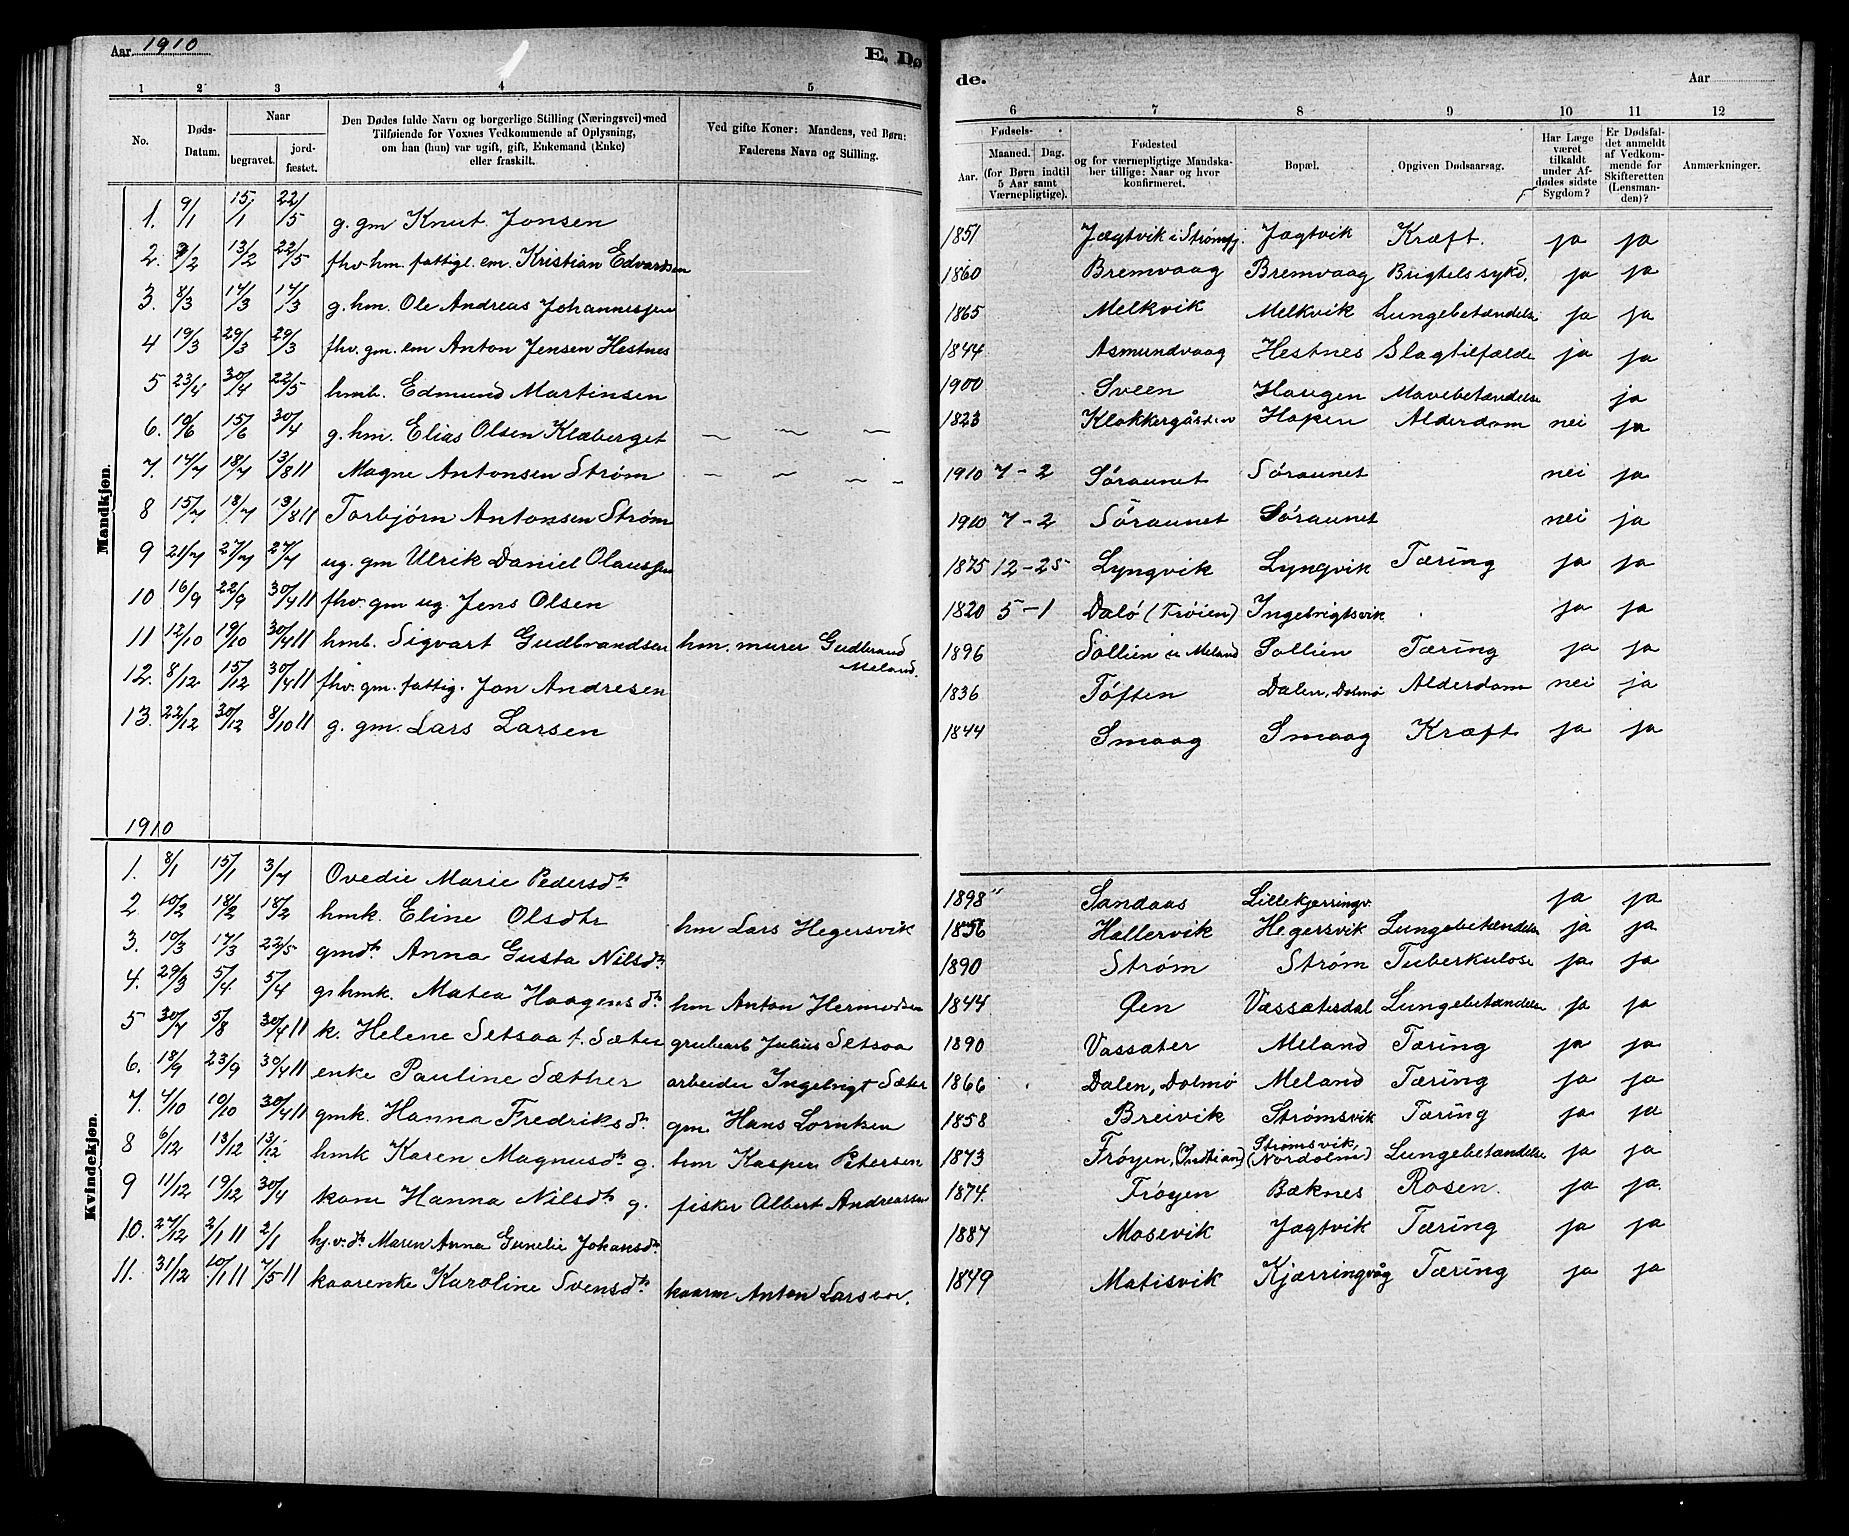 Aar 1910
E. Dø
de.
Aar
1 2 3 4 5 6 7 8 9 10 11 12
No.
Døds-Datum.
Naar
begravet.
jordfæstet.
Den Dødes fulde Navn og borgerlige Stilling (Næringsvei) med
Tilføiende for Voxnes Vedkommende af Oplysning,
om han (hun) var ugift, gift, Enkemand (Enke)
eller fraskilt.
Ved gifte Koner: Mandens, ved Børn:
Faderens Navn og Stilling.
Fødsels-
Aar.
Maaned. Dag.
(for Børn indtil
5 Aar samt
Værnepligtige).
Fødested
og for værnepligtige Mandska-
ber tillige: Naar og hvor
konfirmeret.
Bopæl.
Opgiven Dødsaarsag.
Har Læge
været
tilkaldt
under Af-
dødes sidste
Sygdom?
Er Dødsfal-
det anmeldt
af Vedkom-
mende for
Skifteretten
(Lensman-
den)?
Anmærkninger.
Mandkjøn.
1. 9/1 15/1 22/5 g. gm Knut Jonsen 1851 Jægtvik i Strømfj. Jagtvik Kræft. ja ja
2. 3/2 13/2 22/5 fhv. hm. fattigl. em. Kristian Edvardsen 1860 Bremvaag Bremvaag Brigtels sykd. ja ja
3. 8/3 14/3 14/3 g. hm. Ole Andreas Johannessen 1865 Melkvik Melkvik Lungebetændelse ja ja
4 19/3 29/3 29/3 fhv. gm. em Anton Jensen Hestnes 1844 Asmundvaag Hestnes Slagtilfælde ja ja
5 23/4 30/4 22/5 hmb. Edmund Martinsen 1900 Sveen Haugen Mavebetændelse ja
6. 10/6 15/6 30/4 g. hm. Elias Olsen Klæberget 1823 Klokkergården Hopen Alderdom nei ja
7. 14/7 18/7 13/8 11 Magne Antonsen Strøm 1910 7-2 Søraunet Søraunet nei ja
8 15/7 18/7 13/8 11 Torbjørn Antonsen Strøm 1910 7-2 Søraunet Søraunet nei ja
9 21/7 27/7 27/7 ug. gm Ulrik Daniel Olaussen 1875 12-25 Lyngvik Lyngvik Tæring ja ja
10 16/9 22/9 30/4 11 fhv. gm ug. Jens Olsen 1820 5-1 Dalø (Frøien) Ingebrigtsvik ja ja
11 12/10 19/10 30/4 11 hmb. Sigvart Gudbrandsen hm. murer Gudbrand Meland. 1896 Sollien u Meland Sollien Tæring ja ja
12. 8/12 15/12 30/4 11 fhv. gm. fattig. Jon Andresen 1836 Tøften Dalen, Dolmø Alderdom nei ja
13. 22/12 30/12 8/10 11 g. gm. Lars Larsen 1844 Smaag Smaag Kræft ja ja
1910
Kvindekjøn.
1. 8/1 15/1 3/7 Ovedie Marie Pedersdtr 1898 Sandaas Lillekjerringv. ja ja
2 10/2 18/2 18/2 hmk. Eline Olsdtr hm Lars Hegersvik 1856 Hallervik Hegersvik Lungebetændelse ja ja
3. 10/3 17/3 22/5 gmdtr Anna Gusta Nilsdtr 1890 Strøm Strøm Tuberkulose ja ja
4. 29/3 5/4 5/4 g. hmk. Matea Haagensdtr hm Anton Hermodsen 1844 Øen Vassætesdal Lungebetændelse ja ja
5 30/7 5/8 30/4 11 k. Helene Setsaa f. Sæter grubearb Julius Setsaa 1890 Vassæter Meland Tæring ja ja
6. 18/9 23/9 30/4 11 enke Pauline Sæther arbeider Ingebrigt Sæter 1866 Dalen, Dolmø Meland Tæring ja ja
7. 4/10 10/10 30/4 11 gmk. Hanna Fredriksdtr gm. Hans Lorntsen 1858 Breivik Strømsvik Tæring ja ja
8 6/12 13/12 13/12 hmk Karen Magnusdtr g. hm Kasper Petersen 1873 Frøyen, Strømsvik (Nordolm) Lungebetændelse ja ja
9 11/12 19/12 30/4 kone Hanna Nilsdtr g. fisker Albert Andreassen 1874 Frøyen Bæknes Rosen. ja ja.
10. 27/12 2/1 11 2/1 hj.v.dtr Maren Anna Gunelie Johansdtr 1887 Mosevik Jagtvik Tæring ja ja
11. 31/12 10/1 11 7/5 11 kaarenke Karoline Svensdtr kaarm Anton Lars 1849 Matisvik Kjærringvåg Tæring ja ja